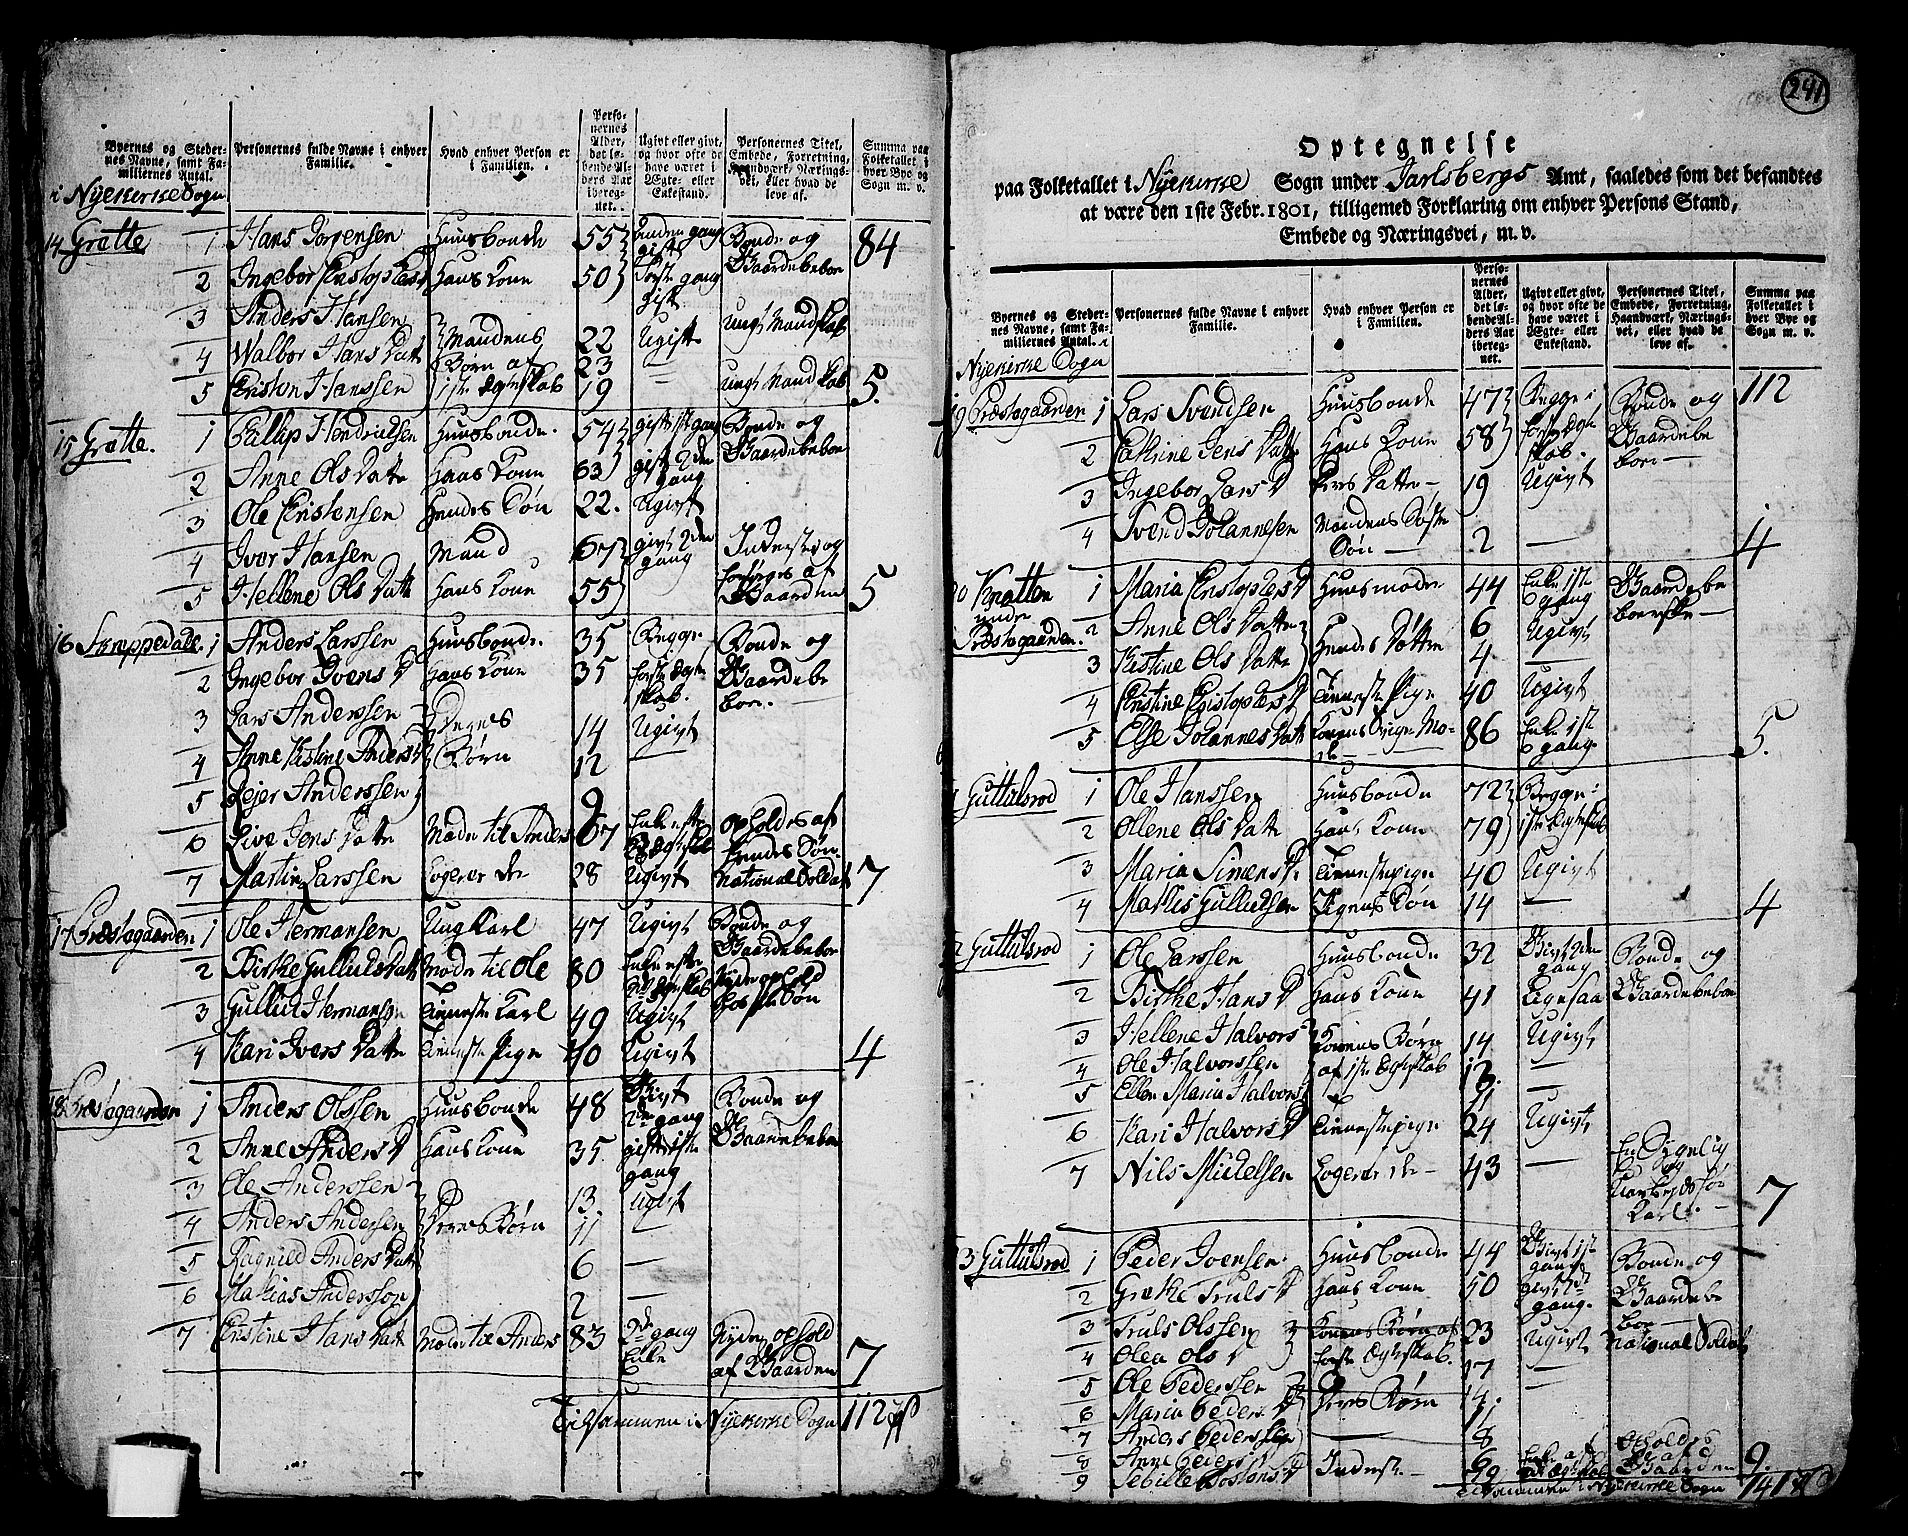 Byernes og Steder-
nes Navne, samt Fa-
miliernes Antal.
Personernes fulde Navne i enhver
Familie.
Hvad enhver Person er
i Familien.
Perso-
nernes
Alder,
det lø-
bende Al-
ders Aar
ibereg-
net.
Ugivt eller givt,
og hvor ofte de
have været i
Ægte- eller
Enkestand.
Personernes Titel,
Embede, Forretning,
Haandværk, Nærings-
vei, eller hvad de
leve af.
Summa paa
Folketallet i
hver Bye og
Sogn m. v.
i Nyekirke Sogn
14 Grette 1 Hans Jörgensen Huusbonde 55 anden gang gift Bonde og Gaardebeboer 84
2 Ingebor Cristophers Hans Kone 50 første gang gift
3 Anders Hansen Mandens 22 Ugift ungt Mandskab
4 Walbor Hans Datt Børn af 23 —
5 Cristen Hanssen 1ste Ægteskab 19 ungt Mandskab 5.
15 Grette. 1 Phillip Hendrichsen Huusbonde 54 gift 1st gang Bonde og Gaardebeboer
2 Anne Ols Datte Hans Kone 63 gift 2den gang
3 Ole Cristensen Hendes Søn 22. Ugivt
4 Iver Hansen Mand 67 givt 2den gang Inderste og forsørges af Gaarden
5 Hellene Ols Datt Hans Kone 55 5
16 Skreppedale. 1 Anders Larssen Huusbonde 35 Begge Bonde og
2 Ingebor Ivers D Hans Kone 35 første Ægteskab. Gaardebeboer. —
3 Lars Anderssen Deres 14 Ugivt
4 Anne Kistine Anders D Børn 12
5 Rejer Anderssen 9
6 Live Jens Datte Moder til Anders 67 Enke efter Ægteskab opholdes af hendes Søn
7 Martin Larssen Logerer der 28 Ugivt National Soldat 7
17 Præstegaarden 1 Ole Hermansen Ung Karl 47 Ugivt Bonde og Gaardebeboer
2 Birthe Gulluds Datt Moder til Ole 80 Enke efter Ægteskab Nyder ophold hos sin Søn
3 Gullud Hermansen Tieneste Karl 49 Ugivt
4 Kari Ivers Datte Tieneste Pige 40 Ugivt 4
18 Præstegaarden 1 Anders Olssen Huusbonde 48 Givt 2den gang Bonde og Gaardebeboer
2 Anne Anders D Hans Kone 35 gift 1ste gang
3 Ole Anderssen 13. Ugivt
4 Anders Anderssen Deres Børn 11 —
5 Ragnild Anders Datt 6 —
6 Mathias Anderssøn 2 —
7 Cristine Hans Datt Moder til Anders 83 2de gang Enke Nyder ophold af Gaarden 7
Tilsammen i Nyekirke Sogn 112
241
Optegnelse
paa Folketallet i Nyekirke Sogn under Jarlsbergs Amt, saaledes som det befandtes
at være den 1ste Febr. 1801, tilligemed Forklaring om enhver Persons Stand,
Embede og Næringsvei, m. v.
Byernes og Steder-
nes Navne, samt Fa-
miliernes Antal.
Personernes fulde Navne i enhver
Familie.
Hvad enhver Person er
i Familien.
Perso-
nernes
Alder,
det lø-
bende Al-
ders Aar
ibereg-
net.
Ugivt eller givt,
og hvor ofte de
have været i
Ægte- eller
Enkestand.
Personernes Titel,
Embede, Forretning,
Haandværk, Nærings-
vei, eller hvad de
leve af.
Summa paa
Folketallet i
hver Bye og
Sogn m. v.
Nyekirke Sogn
9 Præstegaarden 1 Lars Svendsen Huusbonde 47 Begge i Bonde og 112
2 Cathrine Jens Datte Hans Kone 58 første Ægteskab. Gaardebeboer —
3 Ingebor Lars D Deres Datte — 19 Ugivt
4 Svend Johannesen Mandens Søste Søn — 2 — 4
0 Knatten under Præstegaarden. 1 Maria Cristophers D Huusmoder 44 Enke 1ste gang Gaardebeboerske —
2 Anne Ols Datte Hendes Døttre 6 Ugivt
3 Kistine Ols Datte 4. —
4 Cerstine Cristophers D Tieneste Pige 40 Ugivt
5 Else Johannes Datt Konens Svigr Moder 86 Enke 1ste gang 5.
Guttulsrod 1 Ole Hanssen Huusbonde 72 Begge i
2 Ollene Ols Datte Hans Kone 79 1ste Ægteskab
3 Maria Simens D. Tienestepige 40 Ugivt
4 Mathis Gullichsen Pigens Søn 14 — 4
2 Guttulsrod 1 Ole Larssen Huusbonde 32 Givt 2den gang Bonde og
2 Birthe Hans D Hans Kone 41 Ligesaa Gaardebeboer
3 Hellene Halvors Konens Børn 14 Ugivt
4 Ole Halvorssen af 1ste Ægteskab 13. —
5 Ellen Maria Halvors 11 —
6 Kari Halvors D Tienestepige 24 Ugivt
7 Nils Mickelsen Logerer der — 43 — Karl. — 7
3 Guttulsrod 1 Peder Ivensen Huusbonde 44 Givt 1st gang Bonde og
2 Grethe Truls D Hans Kone 50 givt 2de gang. Gaardebeboer
3 Truls Olssen Konens Børn af 23 Ugivt National Soldat
4 Olea Ols D første Ægteskab. 17 —
5 Ole Pederssen Deres Børn 14. —
6 Maria Peders D 11
7 Anders Pederssen 8
8 Anne Peders D 6
9 Sebille Torstens D Inderste Enke af Ægteskab Opholdes af Gaarden 9.
Tilsammen i Nyekirke Sogn 141